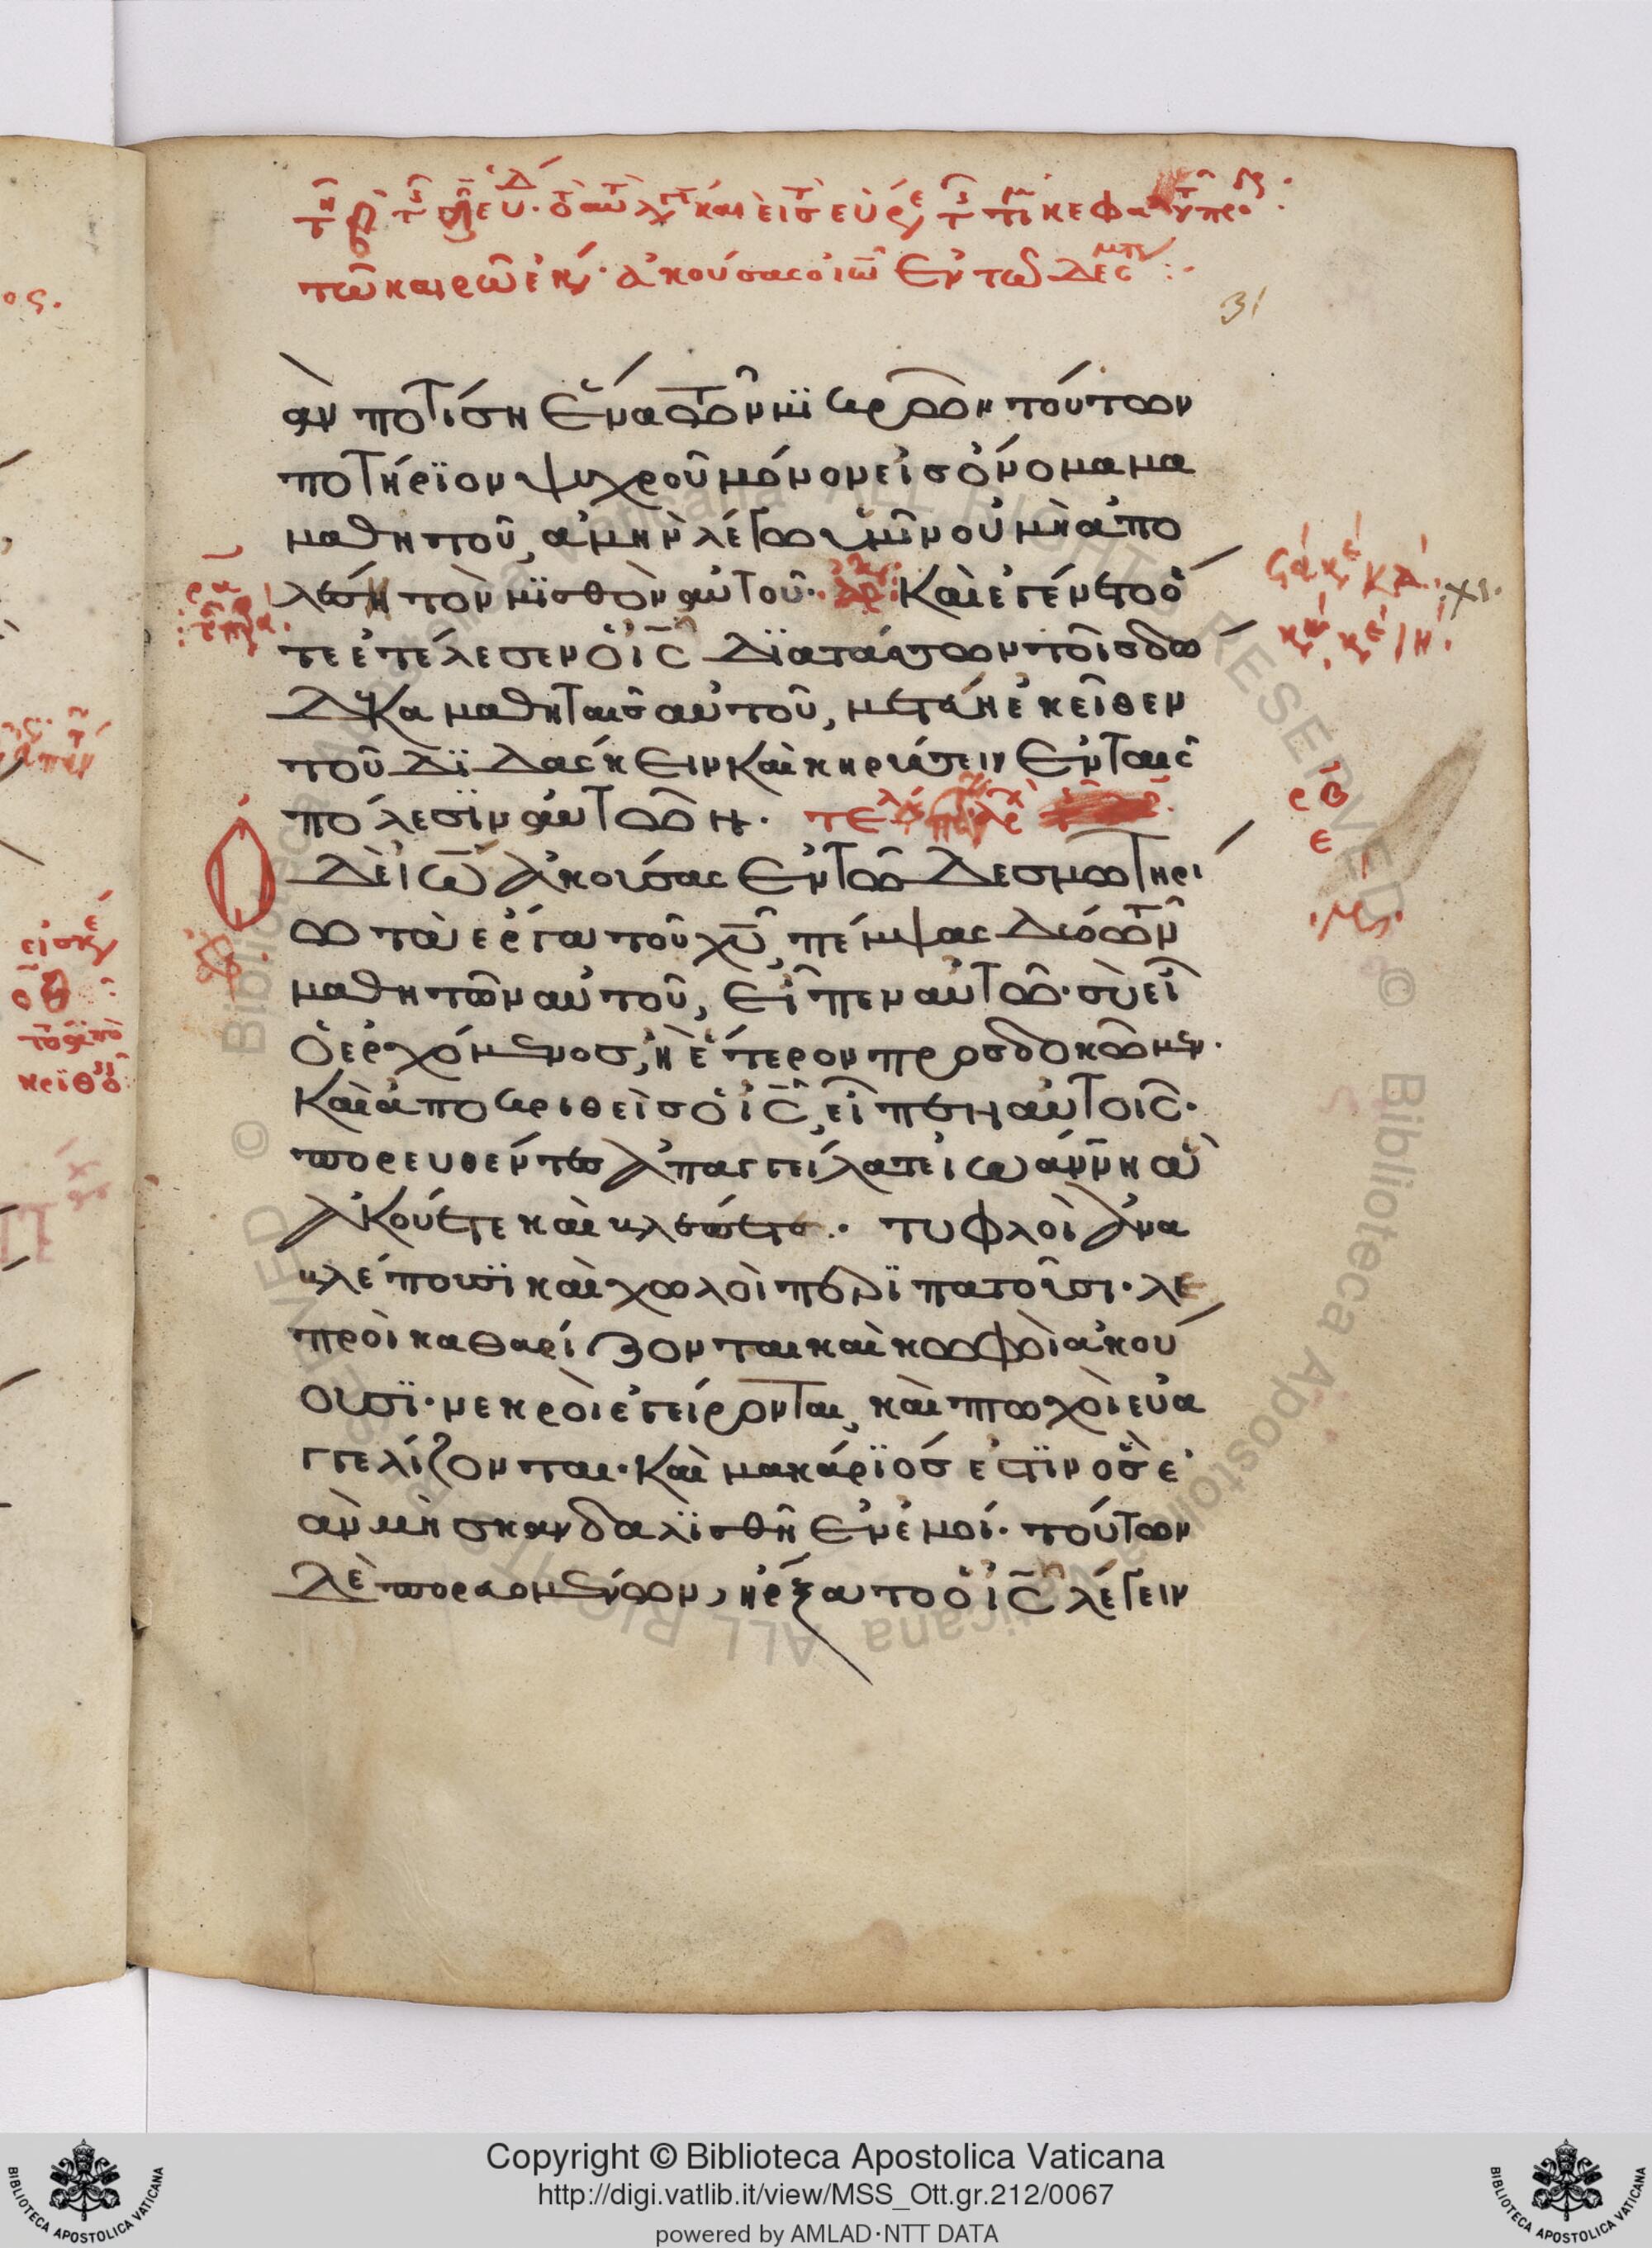 31
ἂν ποτίση ἕνα τῶν μϊκρῶν τούτων
ποτήρϊον ψυχροῦ μόνον εἰσ ὄνομα μα
μαθητοῦ, ἀμὴν λέγω ὑμῖν οὐ μὴ ἀπο
λέση τὸν μϊσθὸν αὐτοῦ· Καὶ ἐγένετο ὅ
τε ἐτέλεσεν ὁ ἰς διατάσσων τοῖσ δώ
δεκα μαθηταῖς αὐτοῦ, μετέβη ἐκεῖθεν
τοῦ δϊδάσκειν καὶ κηρύττειν ἐν ταῖς
πόλεσϊν αὐτῶν·
Ὁ
δὲ ἰω ἀκούσας ἐν τῶ δεσμωτηρί
ω τὰ ἔργα τοῦ χυ, πέμψας δύο τῶν
μαθητῶν αὐτοῦ, εἶπεν αὐτῶ· σὺ εἶ
ὁ ἐρχόμενοσ, ἢ ἕτερον προσδοκῶμεν·
Καὶ ἀποκριθεὶσ ὁ ἰς, εἶπεν αὐτοῖς·
πορευθέντες ἀπαγγείλατε ἰωάννη ἃ
ἀκούετε καὶ βλέπετε· τυφλοὶ ἀνα
βλέπουσϊ καὶ χωλοὶ περϊπατοῦσι· λε
προὶ καθαρίζονται καὶ κωφοὶ ἀκού
ουσϊ· νεκροὶ ἐγείρονται, καὶ πτωχοὶ εὐα
γγελίζονται· Καὶ μακάρϊός ἐστϊν ὃσ ἐ
ὰν μὴ σκανδαλϊσθῆ ἐν ἐμοί· τούτων
δὲ πορευομένων, ἤρξατο ὁ ἰς λέγειν
Copyright © Biblioteca Apostolica Vaticana
http://digi.vatlib.it/view/MSS_Ott.gr.212/0067
powered by AMLAD·NTT DATA